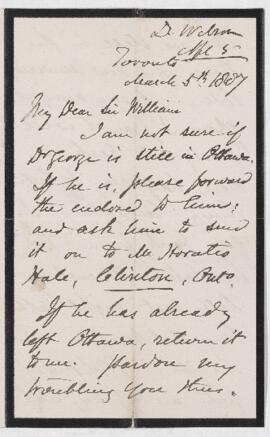 Dr Wilson
Toronto
March 5th 1887
My Dear Sir William
I am not sure if
Dr George is still in Ottawa.
If he is, please forward
the enclosed to him;
and ask him to send
it on to Mr Horatio
Hale, Clinton, Onto.
If he has already
left Ottawa, return it
to me. Pardon my
troubling you thus.